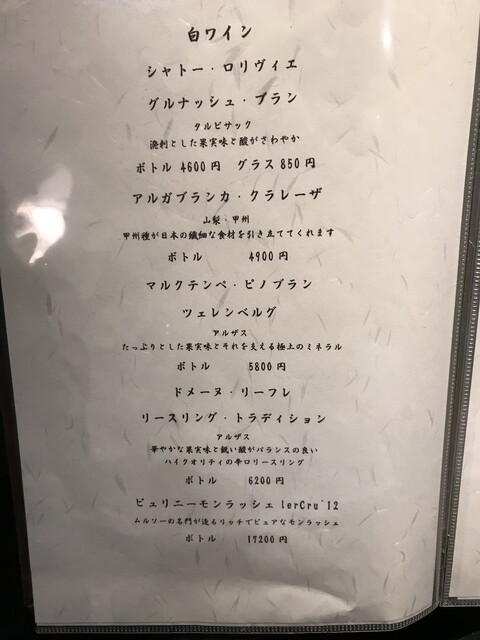 白ワイン
シャトー・ロリヴィエ
グルナッシュ・ブラン
タルビサック
溌剌とした果実味と酸がさわやか
ボトル 4600円 グラス 850円
アルガブランカ・クラレーザ
山梨・甲州
甲州種が日本の繊細な食材を引き立ててくれます
ボトル 4900円
マルクテンペ・ピノブラン
ツェレンベルグ
アルザス
たっぷりとした果実味とそれを支える極上のミネラル
ボトル 5800円
ドメーヌ・リーフレ
リースリング・トラディション
アルザス
華やかな果実味と鋭い酸がバランスの良い
ハイクオリティの辛口リースリング
ボトル 6200円
ピュリニーモンラッシェ 1erCru`12
ムルソーの名門が造るリッチでピュアなモンラッシェ
ボトル 17200円